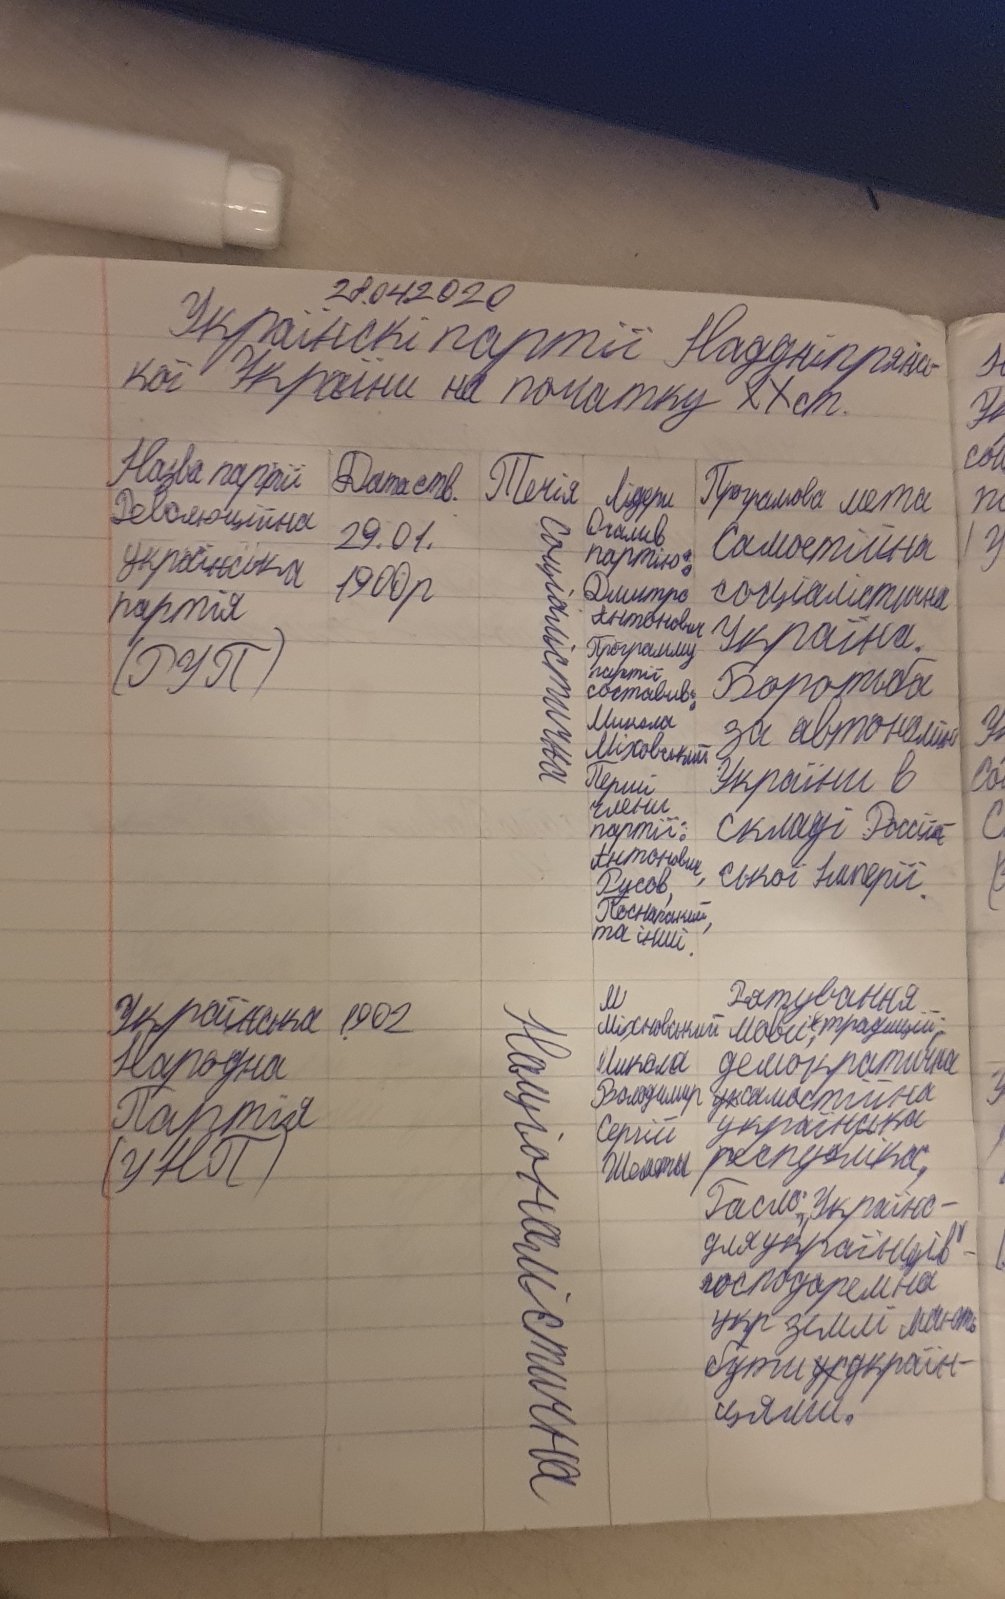 28.04.2020
Українскі партії Наддніпрянс-
кої України на початку XXст.
Назва партії
Дата ств.
Течія
Лідери
Програмова мета
Революційна
українська
партія
(РУП)
29.01.
1900р
соціалістична
Очалив
партію:
Дмитро
Антонович
Программу
партії
составив:
Микола
Міховський
Перші
члени
партії:
Антонович,
Русов,
та інші.
Самостійна
соціалістична
Україна.
Боротьба
за автономію
України в
складі Російсь
ської Імперії.
Українська
Народна
Партія
(УНП)
1902
Націоналістична
М
Міхновський
Микола
Володимир
Сергій
Шемети
Рятування
мови, традицій,
демократична
самостійна
українська
республіка,
Гасло: "Україна-
для українців"-
господарем на
укр землі мають
бути україн-
цями.